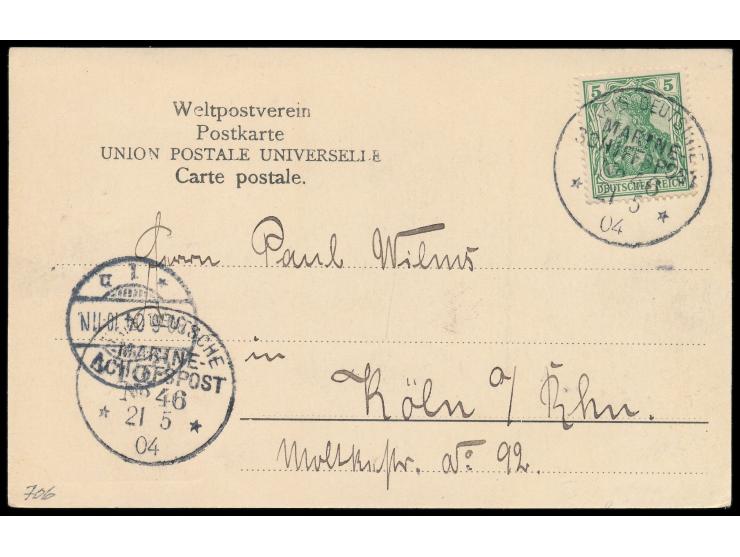 Weltpostverein
Postkarte
UNION POSTALE UNIVERSELLE
Carte postale.
5 5
DEUTSCHES REICH
MARINE-
SCHIFFSPOST
21 5
04
Herrn Paul Wilms
in
Köln a/Rhn.
Moltkestr. No: 92.
DEUTSCHE
MARINE-
SCHIFFSPOST
No 46
21 5
04
706